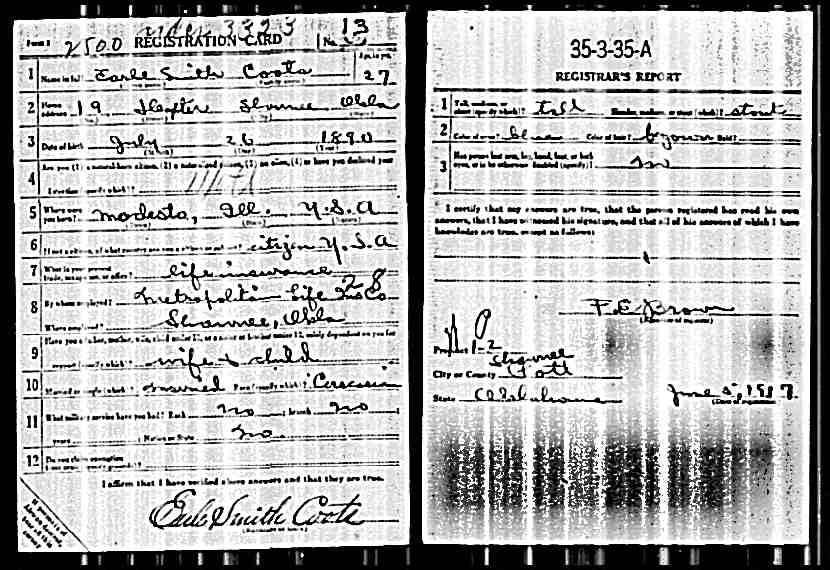 Form 1 2500 REGISTRATION CARD No. 13
1 Name in full Earle Smith Coots Age, in yrs. 27
2 Home address 19 Shawnee Okla
3 Date of birth July 26 1890
4 Are you (1) a natural-born citizen, (2) a naturalized citizen, (3) an alien, (4) or have you declared your
intention (specify which)?
5 Where were you born? Modesto, Ill. U.S.A
6 If not a citizen, of what country are you a citizen or subject? citizen U.S.A
7 What is your present trade, occupation, or office? life insurance
28
8 By whom employed? Metropolitan Life Ins Co
Where employed? Shawnee, Okla
9 Have you a father, mother, wife, child under 12, or a sister or brother under 12, solely dependent on you for
support (specify which)? wife & child
10 Married or single (which)? Married Race (specify which)? Caucasian
11 What military service have you had? Rank no ; branch no ;
years ; Nation or State no
12 Do you claim exemption
I affirm that I have verified above answers and that they are true.
Earle Smith Coots
35-3-35-A
REGISTRAR'S REPORT
1 Tall, medium, or short (specify which)? tall Slender, medium, or stout (which)? stout
2 Color of eyes? Color of hair? brown Bald?
3 Has person lost arm, leg, hand, foot, or both
eyes, or is he otherwise disabled (specify)? no
I certify that my answers are true, that the person registered has read his own
answers, that I have witnessed his signature, and that all of his answers of which I have
knowledge are true, except as follows:
F. E. Brown
(Signature of registrar)
Precinct 1-2
Shawnee
City or County Pott
State Oklahoma June 5, 1917
(Date of registration)